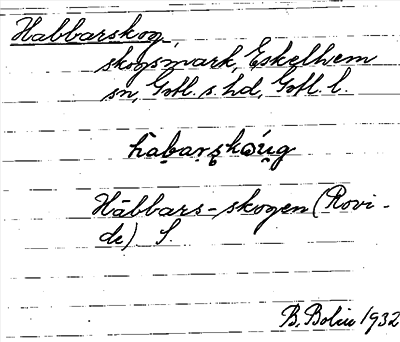 Habbarskog,
skogsmark, Eskelhem
sn, Gotl. s. hd, Gotl. l.
hābarskǫu̯g
Hābbars-skogen (Rovi-
de) S.
B. Bolin 1932